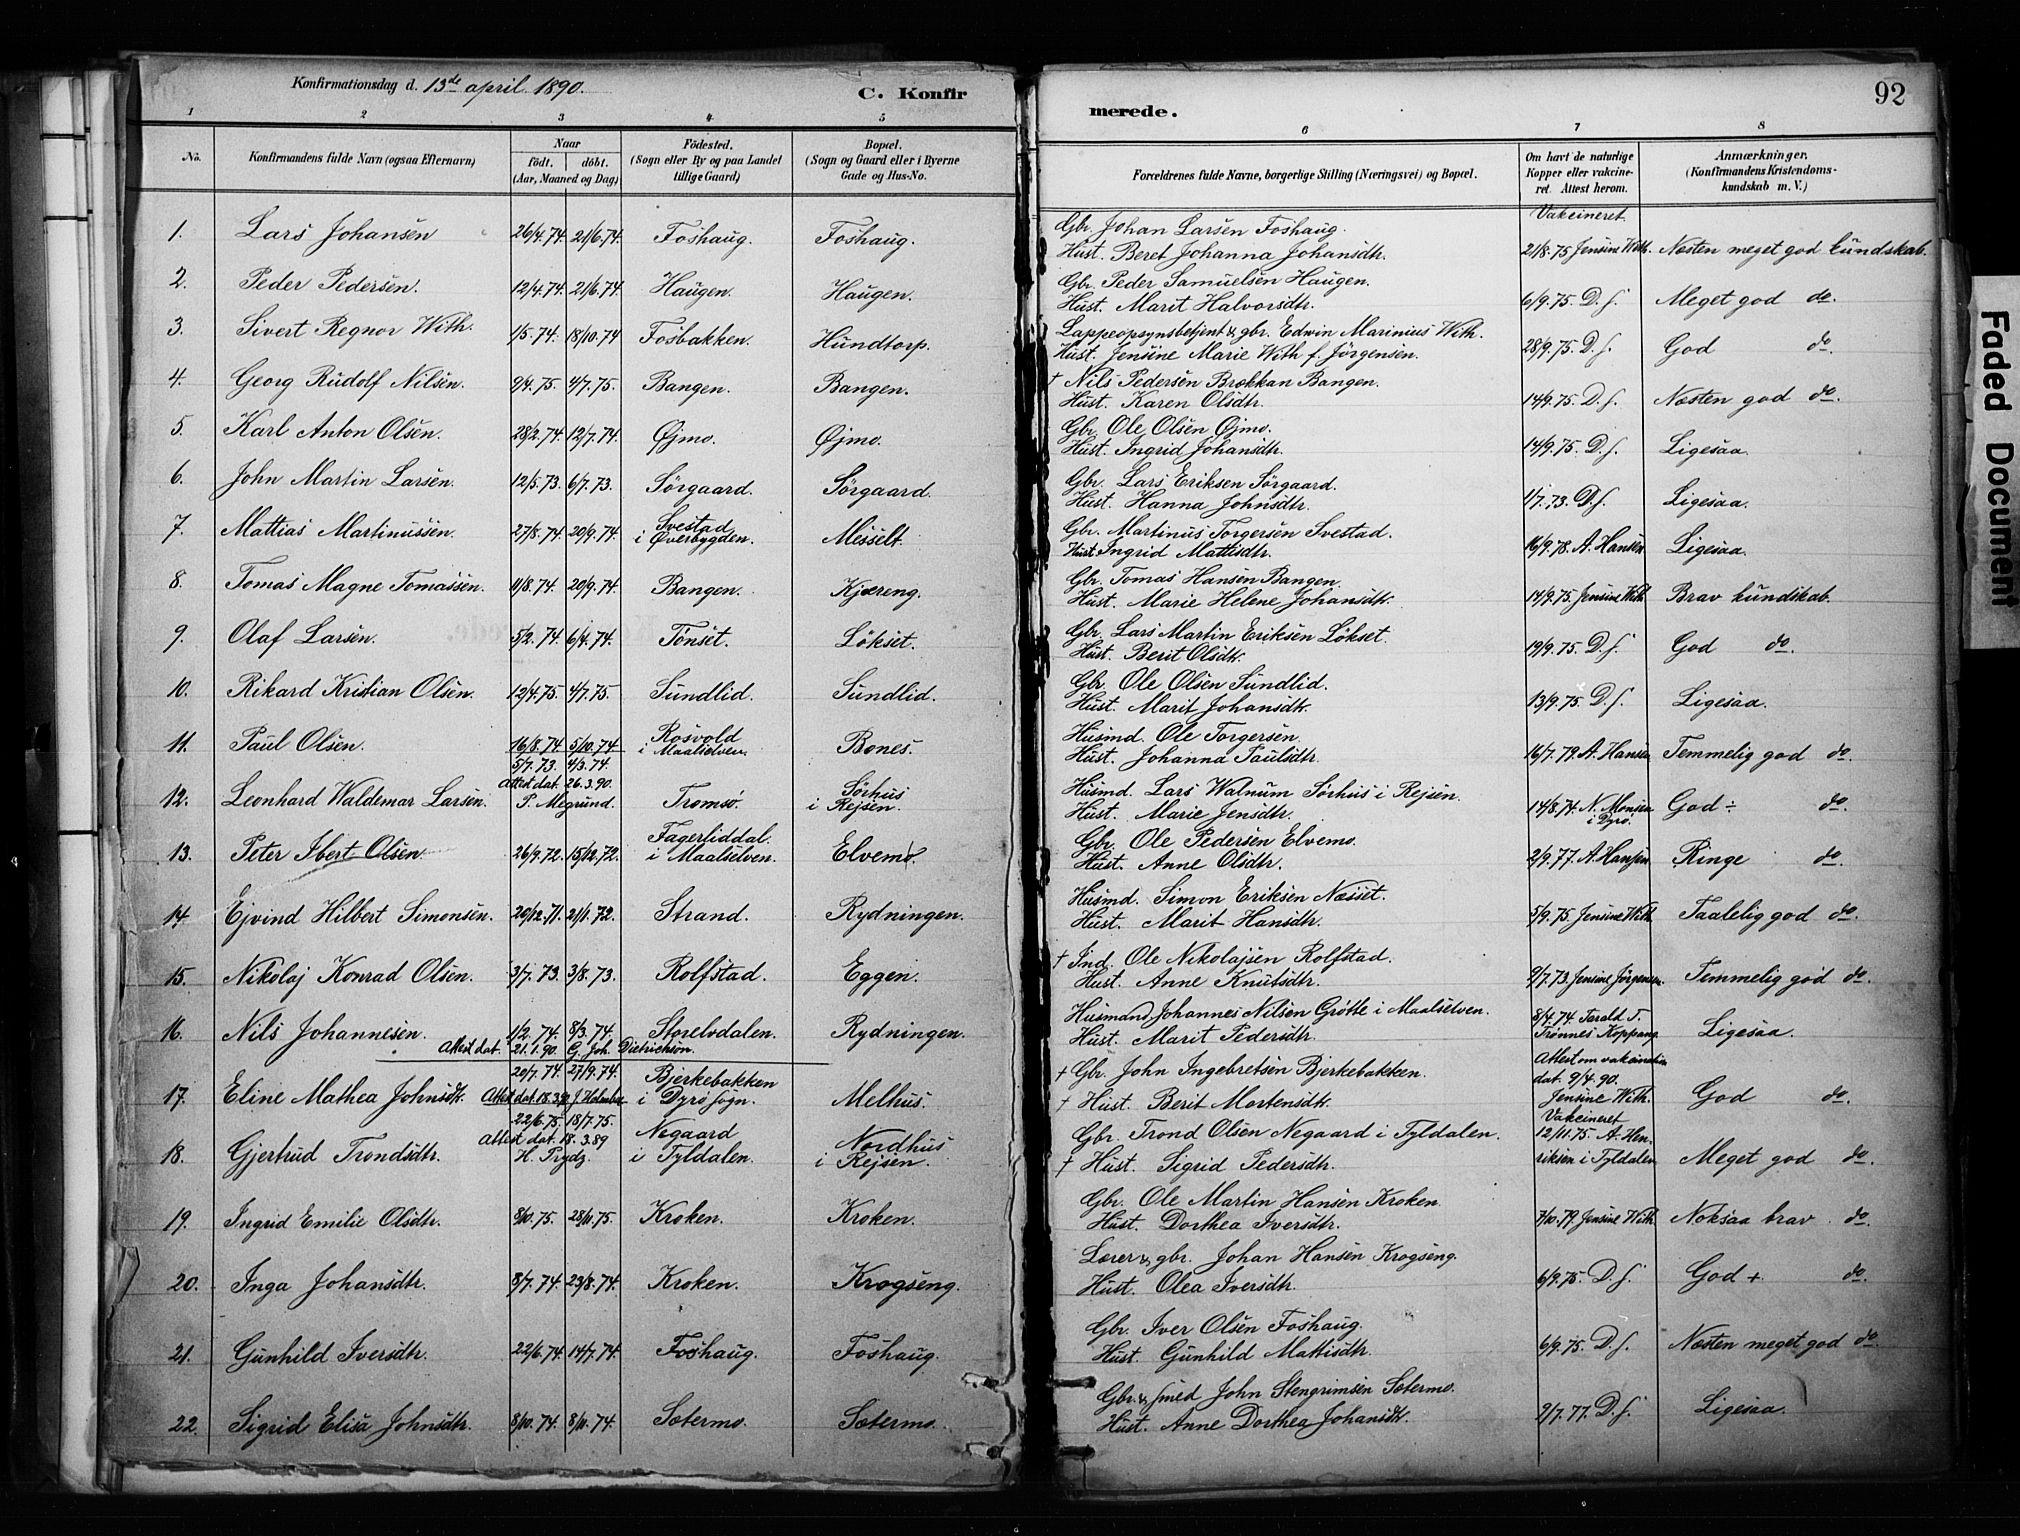 Konfirmationsdag d. 13de april 1890.
C. Konfirmerede.
92
1 2 3 4 5 6 7 8
No.
Konfirmandens fulde Navn (ogsaa Efternavn)
Naar
födt. döbt.
(Aar, Maaned og Dag)
Födested.
(Sogn eller By og paa Landet
tillige Gaard)
Bopæl.
(Sogn og Gaard eller i Byerne
Gade og Hus-No.
Forældrenes fulde Navne, borgerlige Stilling (Næringsvei) og Bopæl.
Om havt de naturlige
Kopper eller vakcine-
ret. Attest herom.
Anmærkninger.
(Konfirmandens Kristendoms-
kundskab m. V.)
Vakcineret
1. Lars Johansen 26/4.74. 21/6.74. Foshaug. Foshaug. Gbr. Johan Larsen Foshaug.
Hust. Beret Johanna Johansdtr. 21/8.75 Jensine With. Næsten meget god kundskab.
2. Peder Pedersen. 12/4.74. 21/6.74. Haugen. Haugen. Gbr. Peder Samuelsen Haugen.
Hust. Marit Halvorsdtr. 6/9.75. D.s. Meget god do.
3. Sivert Regnor With. 1/5.74. 18/10.74 Fosbakken. Hundtorp. Lappeopsynsbetjent & gbr. Edwin Marinius With.
Hust. Jensine Marie With f. Jörgensen. 28/9.75. D.s. God do.
4. Georg Rudolf Nilsen. 9/4.75. 4/7.75. Bangen. Bangen. † Nils Pedersen Brækkan Bangen.
Hust. Karen Olsdtr. 14/9.75. D.s. Næsten god do.
5. Karl Anton Olsen. 28/2.74. 12/7.74. Øjmo. Øjmo. Gbr. Ole Olsen Øjmo.
Hust. Ingrid Johansdtr. 14/9.75. D.s. Ligesaa.
6. John Martin Larsen. 12/5.73. 6/7.73. Sörgaard. Sörgaard. Gbr. Lars Eriksen Sörgaard.
Hust. Hanna Johnsdtr. 1/7.73. D.s. Ligesaa.
7. Mattias Martinussen. 27/8.74. 20/9.74. Svestad
i Øverbygden. Messelt. Gbr. Martinus Torgersen Svestad.
Hust. Ingrid Mattisdtr. 16/9.78. A. Hansen Ligesaa.
8. Tomas Magne Tomassen. 11/8.74. 20/9.74. Bangen. Kjæreng. Gbr. Tomas Hansen Bangen.
Hust. Marie Helene Johansdtr. 14/9.75. Jensine With. Brav kundskab.
9. Olaf Larsen. 5/2.74. 6/4.74. Tönset. Lökset. Gbr. Lars Martin Eriksen Lökset.
Hust. Berit Olsdtr. 19/9.75. D.s. God do.
10. Rikard Kristian Olsen. 12/4.75. 4/7.75. Sundlid. Sundlid. Gbr. Ole Olsen Sundlid.
Hust. Marit Johansdtr. 13/9.75. D.s. Ligesaa.
11. Paul Olsen. 16/8.74. 5/10.74. Rosvold
i Maalselven. Bones. Husmd. Ole Torgersen.
Hust. Johanna Paulsdtr. 16/7.79. A. Hansen Temmelig god do.
12. Leonhard Waldemar Larsen. 5/7.73. 4/3.74.
Attest dat. 26.3.90.
P. Møgrund. Tromsö. Sörhus
i Rejsen. Husmd. Lars Walnum Sörhus i Rejsen.
Hust. Marie Jensdtr. 14/8.74. N. Monsen
i Dyrö. God ÷ do.
13. Peter Ibert Olsen. 26/9.72. 15/12.72. Fagerliddal.
i Maalselven. Elvemo. Gbr. Ole Pedersen Elvemo.
Hust. Anne Olsdtr. 2/9.77. A. Hansen Ringe do.
14. Ejvind Hilbert Simonsen. 20/12.71. 21/1.72. Strand. Rydningen. Husmd. Simon Eriksen Næsset.
Hust. Marit Hansdtr. 5/9.75. Jensine With. Taalelig god do.
15. Nikolaj Konrad Olsen. 3/7.73. 3/8.73. Rolfstad. Eggen. † Ind. Ole Nikolajsen Rolfstad.
Hust. Anne Knutsdtr. 9/7.73. Jensine Jörgensen. Temmelig god do.
16. Nils Johannesen. 1/2.74. 8/3.74. Storelvdalen. Rydningen. Husmand Johannes Nilsen Grötte i Maalselven.
Attest dat. 21.1.90. G. Joh. Dietrichson. Hust. Marit Pedersdtr. 8/4.74. Tarald T.
Trønnes Koppang. Ligesaa.
17. Eline Mathea Johnsdtr. 20/7.74. 27/9.74.
Attest dat. 18.3.90 J. Holmboe Bjerkebakken
i Dyrö sogn. Melhus. † Gbr. John Ingebretsen Bjerkebakken.
† Hust. Berit Mortensdtr. Attest om vakcination
dat. 9/4.90.
Jensine With. God do.
18. Gjertrud Trondsdtr. 22/6.75. 18/7.75.
Attest dat. 18.3.89
H. Prydz. Negaard
i Tyldalen. Nordhus
i Rejsen. Gbr. Trond Olsen Negaard i Tyldalen.
† Hust. Sigrid Pedersdtr. Vakcineret
12/11.75. A. Hen-
riksen i Tyldalen Meget god do.
19. Ingrid Emilie Olsdtr. 8/10.75. 28/11.75. Kroken. Kroken. Gbr. Ole Martin Hansen Kroken
Hust. Dorthea Iversdtr. 7/10.79. Jensine With. Noksaa brav. do.
20. Inga Johansdtr. 8/7.74. 23/8.74. Kroken. Krogseng. Lærer & gbr. Johan Hansen Krogseng.
Hust. Olea Iversdtr. 6/9.75. D.s. God +. do.
21. Gunhild Iversdtr. 22/6.74. 14/7.74. Foshaug. Foshaug. Gbr. Iver Olsen Foshaug.
Hust. Gunhild Mattisdtr. 6/9.75. D.s. Næsten meget god do.
22. Sigrid Elisa Johnsdtr. 8/10.74. 8/11.74. Sætermo. Sætermo. Gbr. & smed John Stengrimsen Sætermo.
Hust. Anne Dorthea Johansdtr. 9/7.77. D.s. Ligesaa.
Faded Document